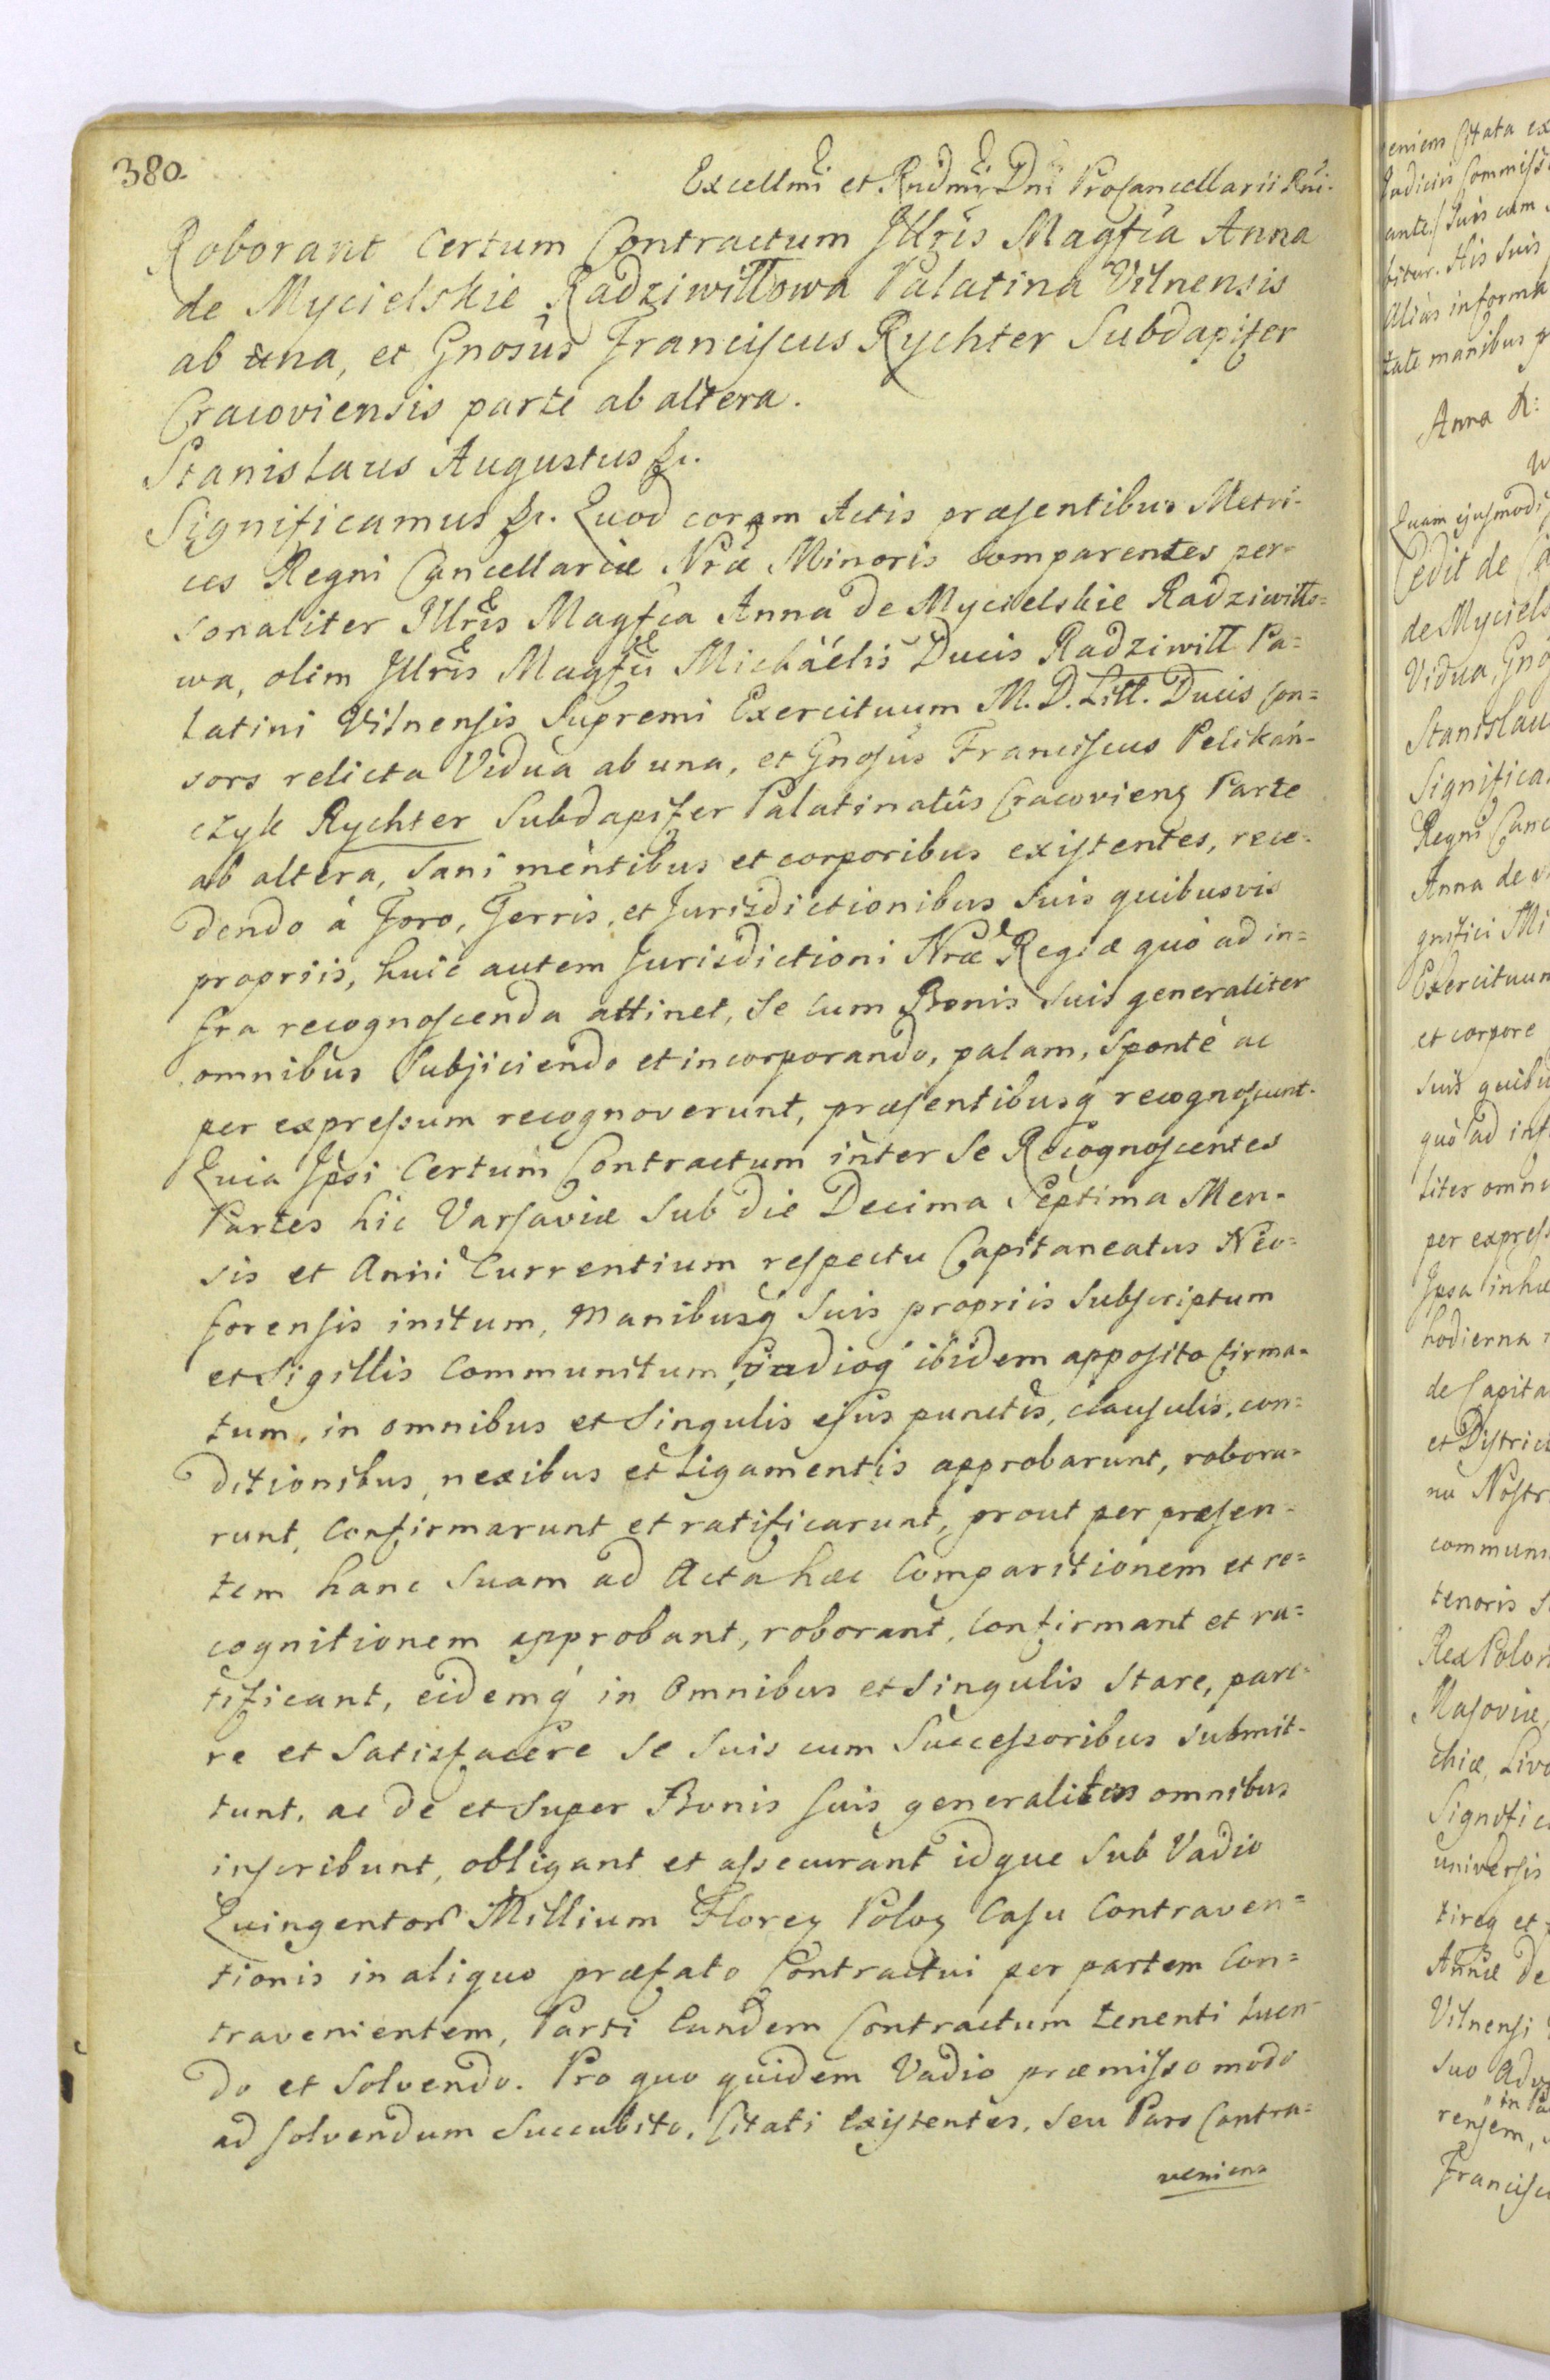 380.
Excellmi et Rndmi Dni Procancellarii Rni.
Roborant Certum Contractum Jllris Magfca Anna
de Mycielskie Radziwiłłowa Palatina Vilnensis
ab una, et Gnosus Franciscus Rychter Subdapifer
Cracoviensis parte ab altera.
Stanislaus Augustus &c.
Significamus &c. Quod coram Actis præsentibus Metri-
ces Regni Cancellariæ Nræ Minoris comparentes per-
sonaliter Jllris Magfca Anna de Mycielskie Radziwiłło=
wa, olim Jllris Magfci Michäelis Ducis Radziwiłł Pa=
latini Vilnensis Supremi Exercituum M. D. Litt. Ducis Con=
sors relicta Vidua ab una, et Gnosus Franciscus Pelikań-
czyk Rychter Subdapifer Palatinatûs Cracovien Parte
ab altera, Sani mentibus et corporibus existentes, rece-
dendo à Foro, Terris, et Jurisdictionibus Suis quibusvis
propriis, huic autem Jurisdictioni Nræ Regiæ quò ad in=
fra recognoscenda attinet, Se cum Bonis Suis generaliter
omnibus Subjiciendo et incorporando, palam, Spontè ac
per expressum recognoverunt, præsentibusq recognoscunt.
Quia Jpsi Certum Contractum inter Se Recognoscentes
Partes hic Varsaviæ Sub die Decima Septima Men-
sis et Anni Currentium respectu Capitaneatus Neo=
forensis initum, Manibusq Suis propriis Subscriptum
et Sigillis Communitum, vadioq ibidem apposito firma-
tum, in omnibus et Singulis ejus punctis, clausulis, con=
ditionibus, nexibus et Ligamentis approbarunt, robora-
runt, Confirmarunt et ratificarunt, prout per præsen-
tem hanc Suam ad Acta hæc Comparitionem et re=
cognitionem approbant, roborant, Confirmant et ra=
tificant, eidemq in Omnibus et Singulis Stare, pare-
re et Satisfacere Se Suis cum Successoribus Submit-
tunt, ac de et Super Bonis Suis generaliter omnibus
inscribunt, obligant et assecurant idque Sub Vadio
Quingentor Millium Floren Polon Casu Contraven=
tionis in aliquo præfato Contractui per partem Con=
travenientem, Parti Eundem Contractum tenenti luen-
do et Solvendo. Pro quo quidem Vadio præmisso modo
ad solvendum Succubito, Citati Existentes, Seu Pars Contra=
veniens
eniens Citata ex
Judicin Commiss
bitur. His Suis
Alias informa
tate manibus p
Anna R:
Quam ejusmodi
Cedit de Ca
de Myciels
Vidua, Gno
Stanislau
Significa
Regni Canc
Anna de
gnifici Mi
Exercituum
et corpore
Suis quibu
quò ad inf
liter omni
per express
Jpsa inhæ
hodierna
de Capita
et District
nu Nostr
communi
tenoris S
Rex Polon
Masoviæ,
chiæ, Livo
Signific
universis
tireq et
Annæ de
Vilnensi
Suo Adv
rensem,
Francisc